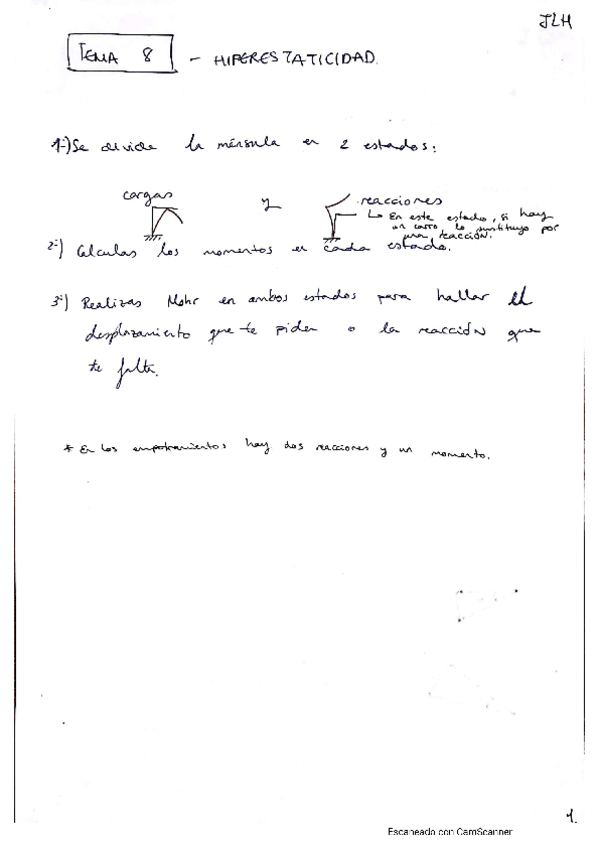 JLH
TEMA 8 - HIPERESTATICIDAD.
1º) Se divide la ménsula en 2 estados:
cargas y reacciones
↳ En este estado, si hay
un carro lo sustituyo por
una reacción.
2º) Calculas los momentos en cada estado.
3º) Realizas Mohr en ambos estados para hallar el
desplazamiento que te piden o la reacción que
te falta.
* En los empotramientos hay dos reacciones y un momento.
1.
Escaneado con CamScanner